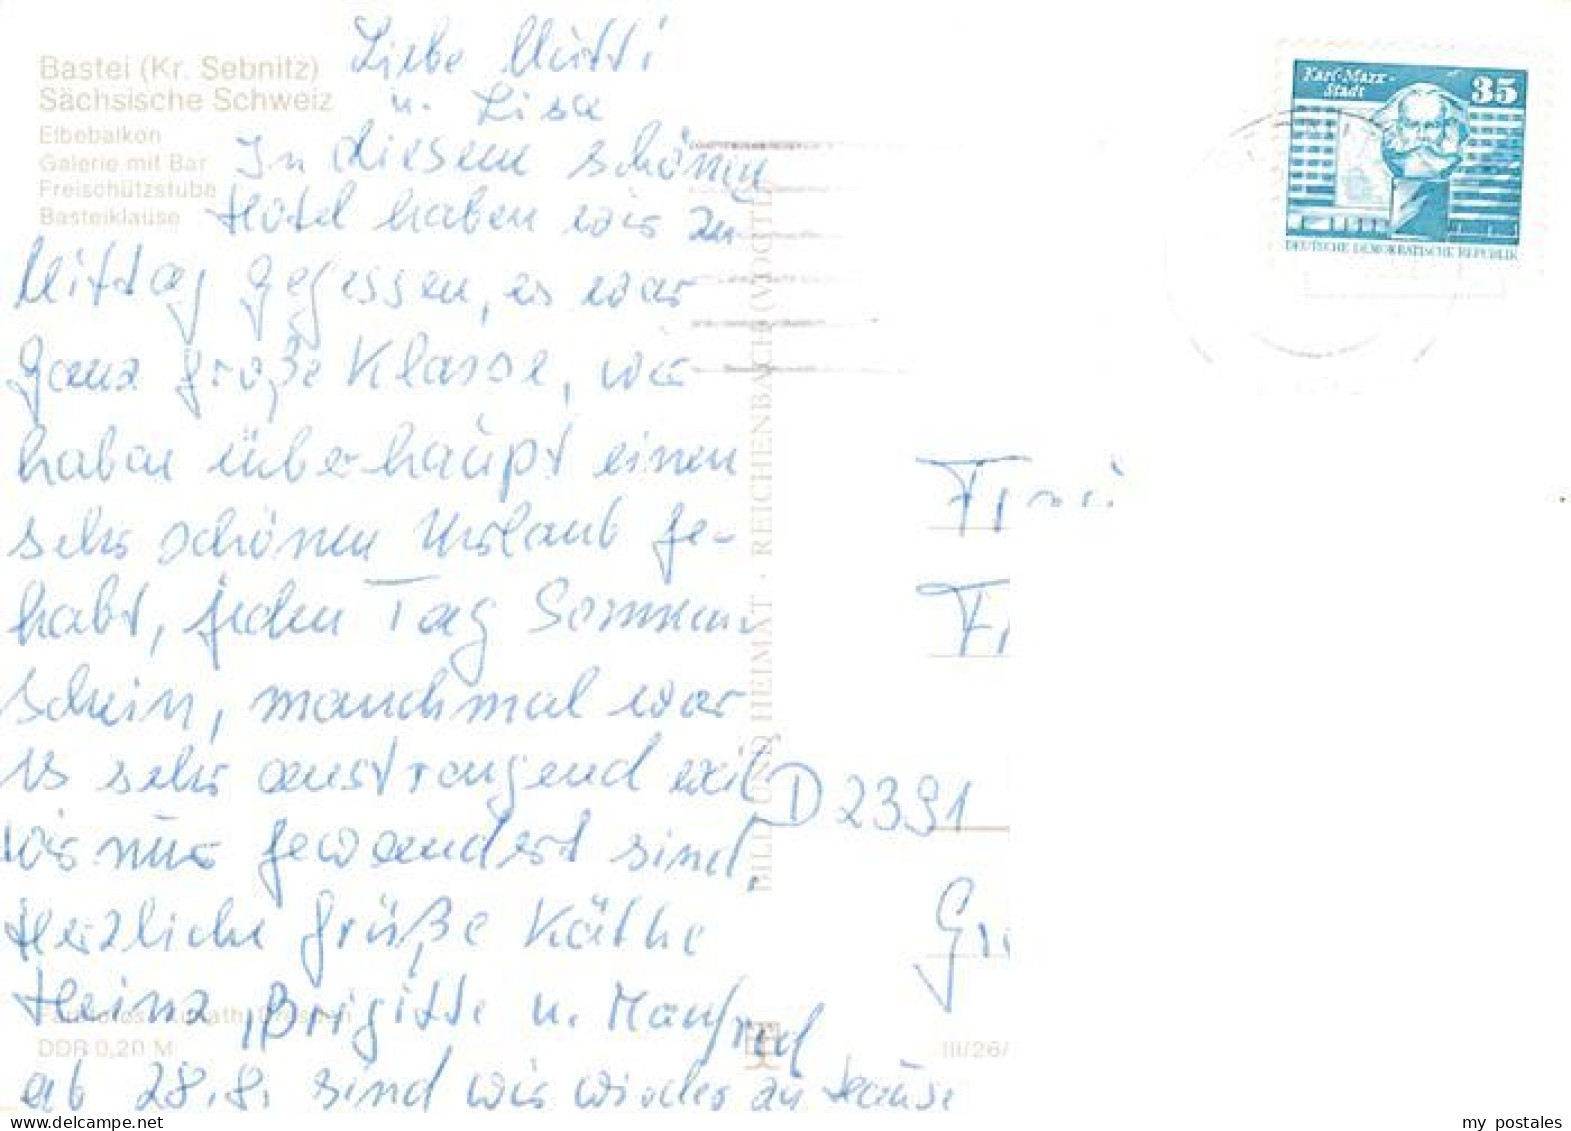 Bastei (Kr. Sebnitz)
Sächsische Schweiz
Elbebalkon
Galerie mit Bar
Freischützstube
Basteiklause
Liebe Mutti
u. Lisa
In diesem schönen
Hotel haben wir zu
Mittag gegessen, es war
ganz große Klasse, wir
haben überhaupt einen
sehr schönen Urlaub ge-
habt, jeden Tag Sonnen
schein, manchmal war
es sehr anstrengend weil
wir nur gewandert sind.
Herzliche Grüße Käthe
Heinz, Brigitte u. Manfred
ab 28.8. sind wir wieder zu Hause
Dresden
DDR 0,20 M
BILD UND HEIMAT · REICHENBACH (VOGTL)
III/26/
Karl-Marx-
Stadt
35
DEUTSCHE DEMOKRATISCHE REPUBLIK
D 2391
my_postales